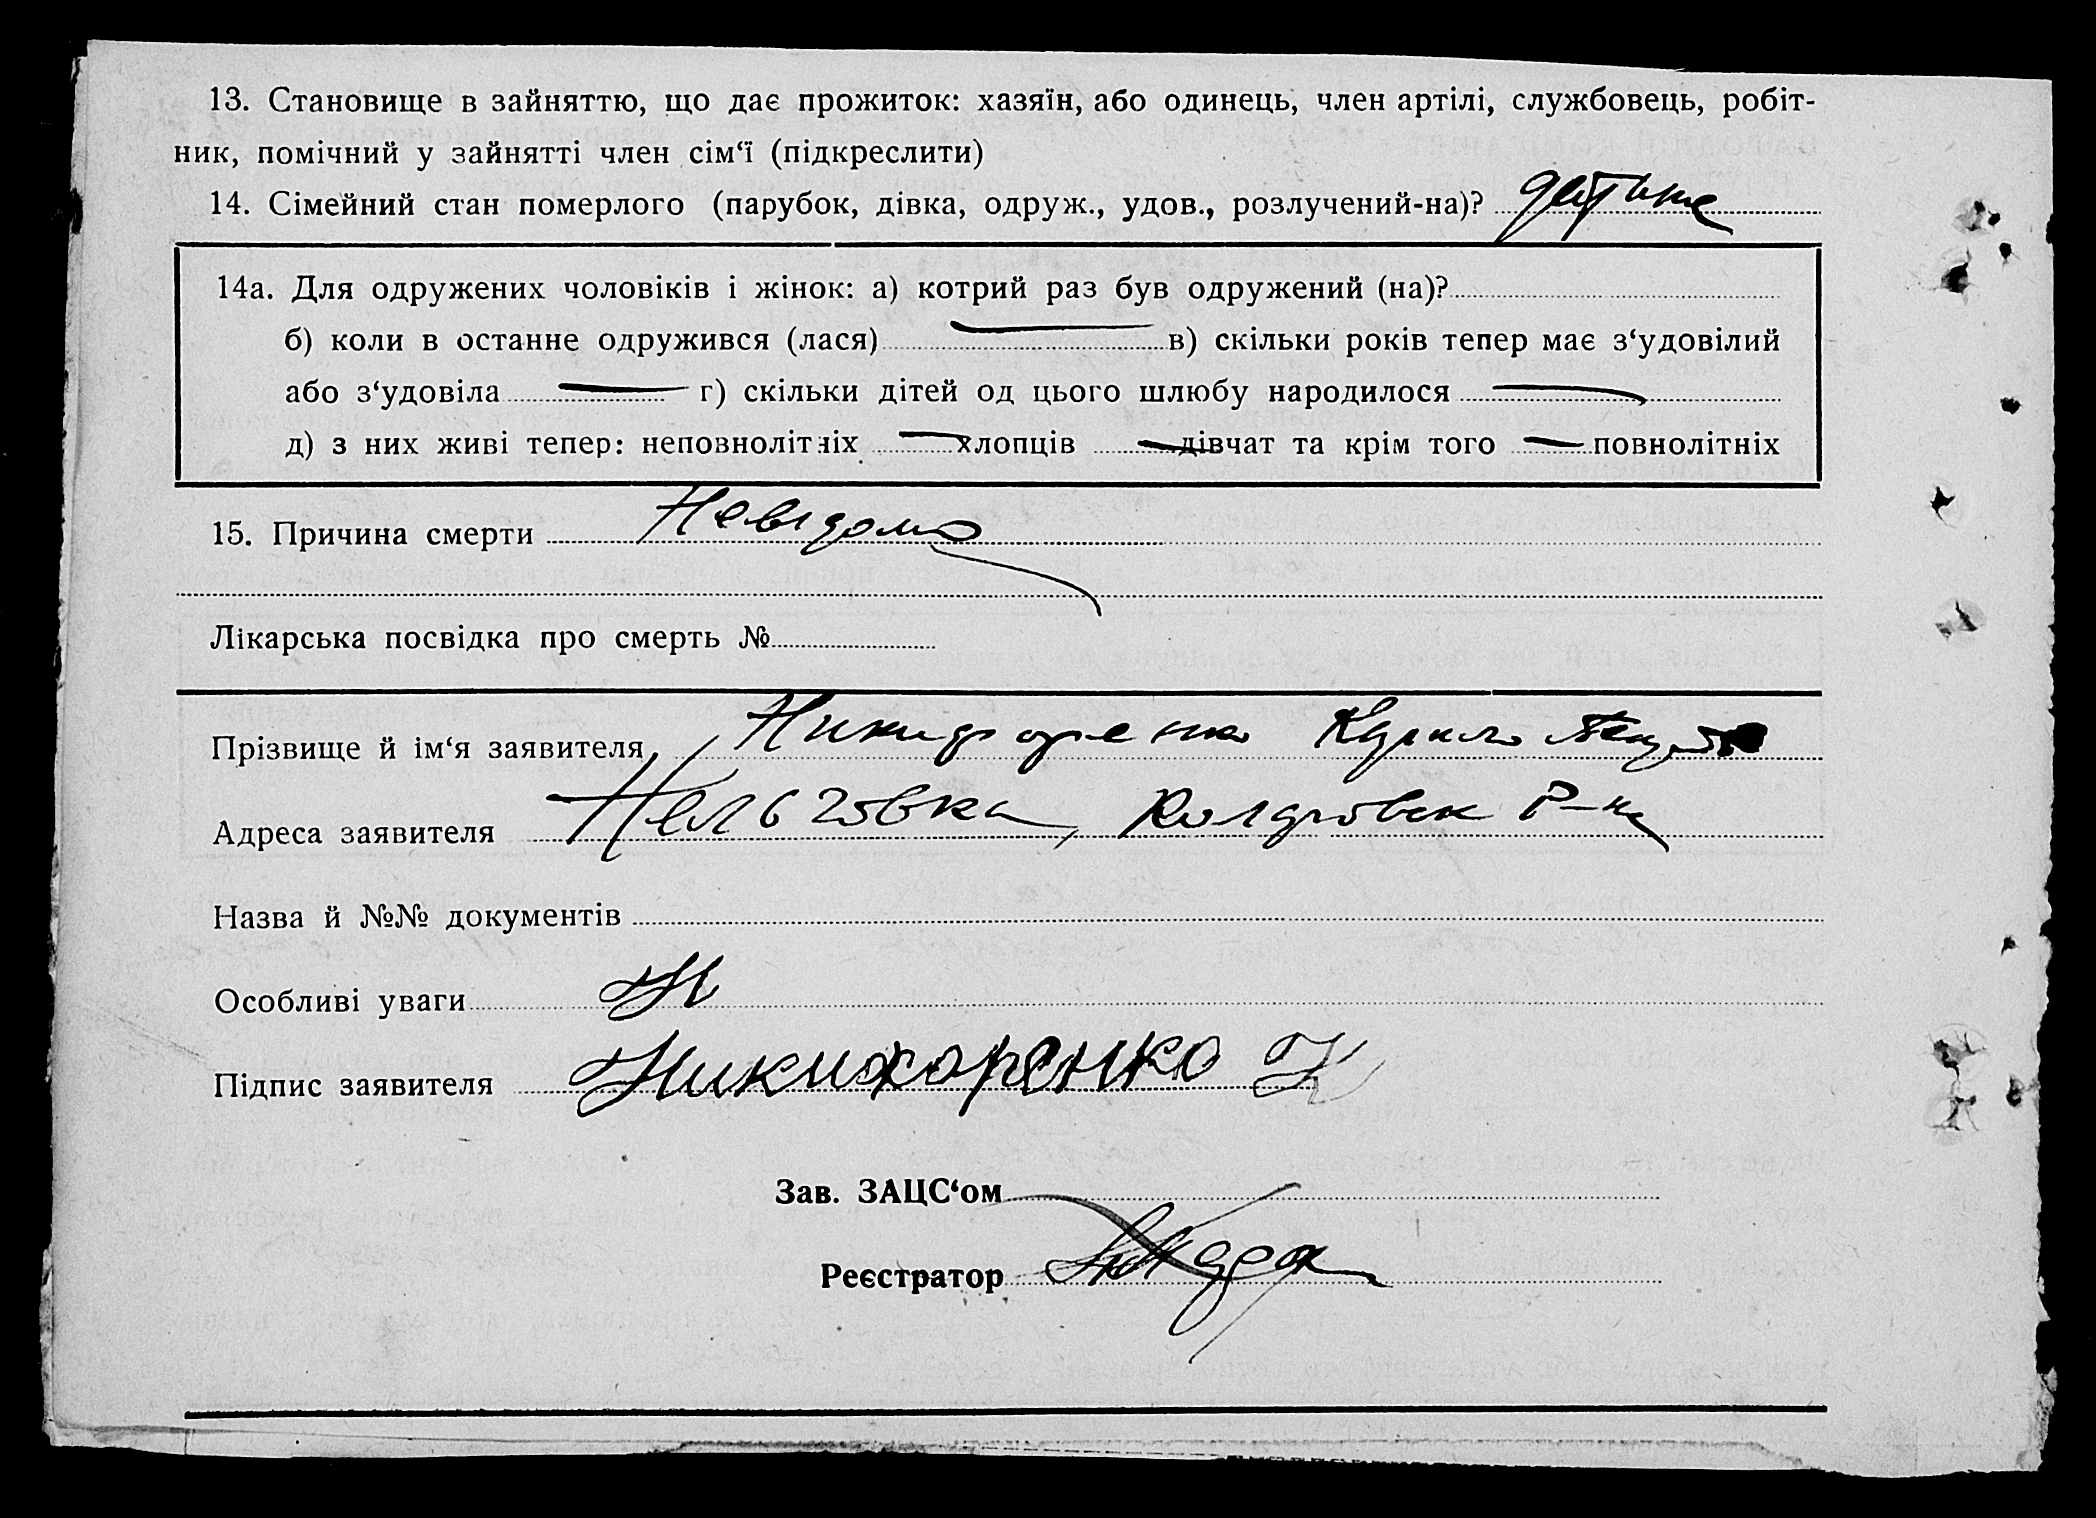 13. Становище в зайняттю, що дає прожиток: хазяїн, або одинець, член артілі, службовець, робіт-
ник, помічний у зайнятті член сім‘ї (підкреслити)
14. Сімейний стан померлого (парубок, дівка, одруж., удов., розлучений-на)? дитина
14а. Для одружених чоловіків і жінок: а) котрий раз був одружений (на)?
б) коли в останнє одружився (лася) — в) скільки років тепер має з‘удовілий
або з‘удовіла — г) скільки дітей од цього шлюбу народилося —
д) з них живі тепер: неповнолітніх — хлопців — дівчат та крім того — повнолітніх
15. Причина смерти Невідома
Лікарська посвідка про смерть №
Прізвище й ім‘я заявителя Никифоренко Кирило
Адреса заявителя Нельговка, Р-на
Назва й №№ документів
Особливі уваги
Підпис заявителя Никихоренко К
Зав. ЗАЦС‘ом
Реєстратор